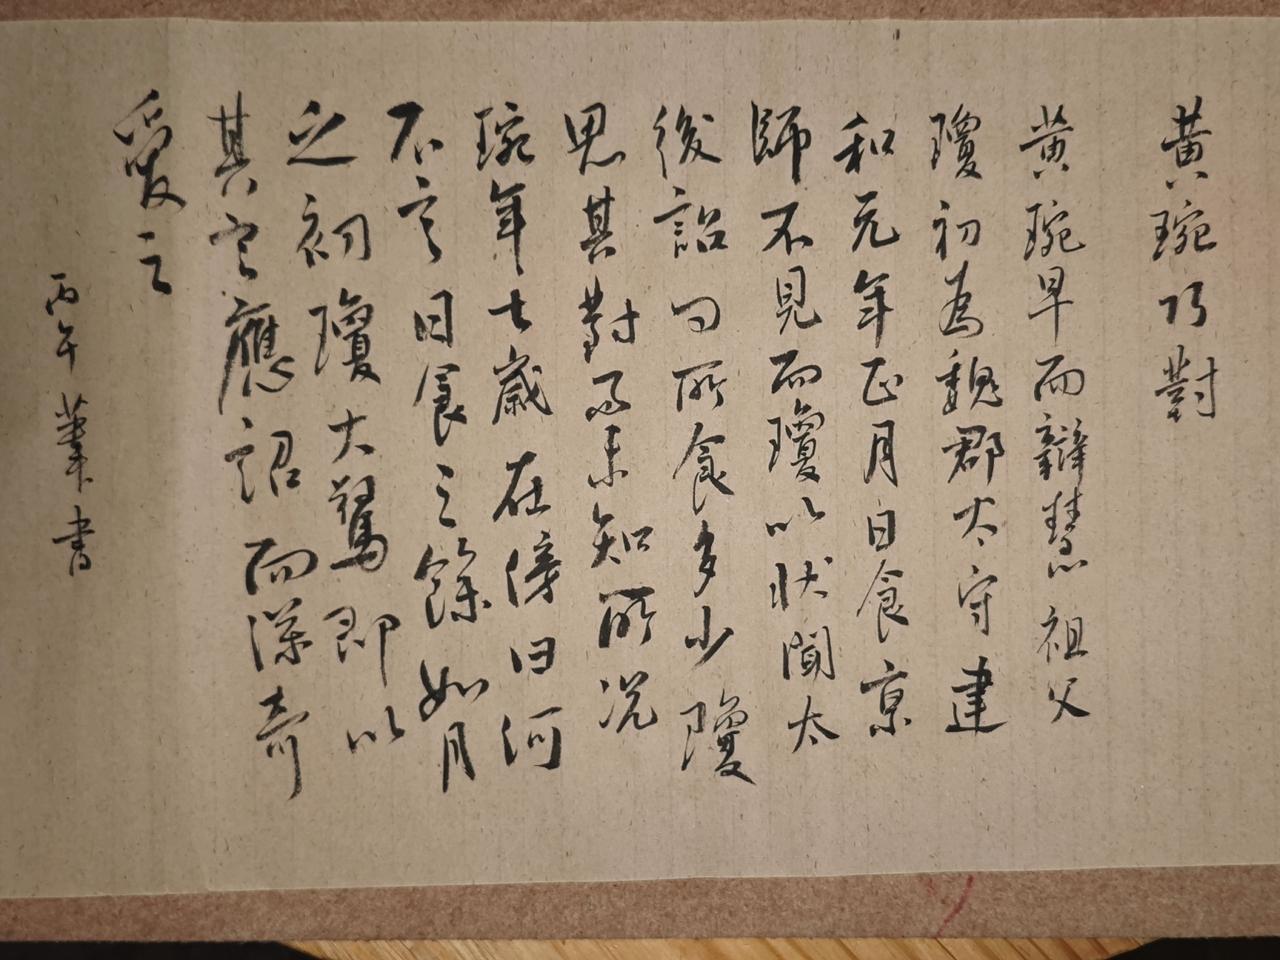 黃琬巧對
黃琬早而辯慧祖父
瓊初為魏郡太守建
和元年正月日食京
師不見而瓊以狀聞太
後詔問所食多少瓊
思其對而未知所況
琬年七歲在傍曰何
不言日食之餘如月
之初瓊大驚即以
其言應詔而深奇
愛之
丙午 筆書